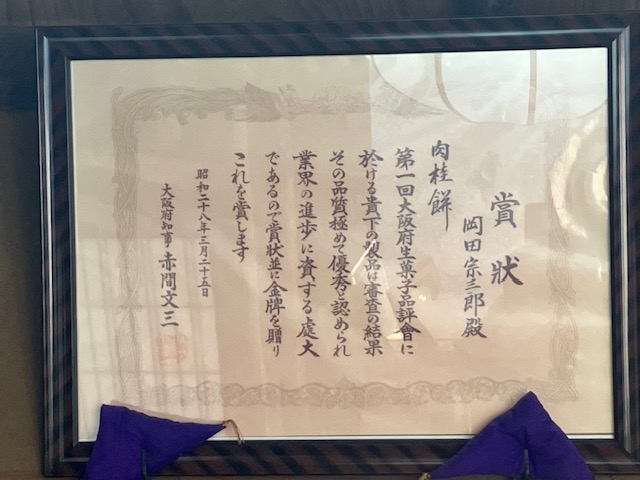 賞狀
岡田宗三郎殿
肉桂餅
第一回大阪府生菓子品評會に
於ける貴下の製品は審査の結果
その品質極めて優秀と認められ
業界の進歩に資する處大
であるので賞狀並に金牌を贈り
これを賞します
昭和二十八年三月二十五日
大阪府知事 赤間文三